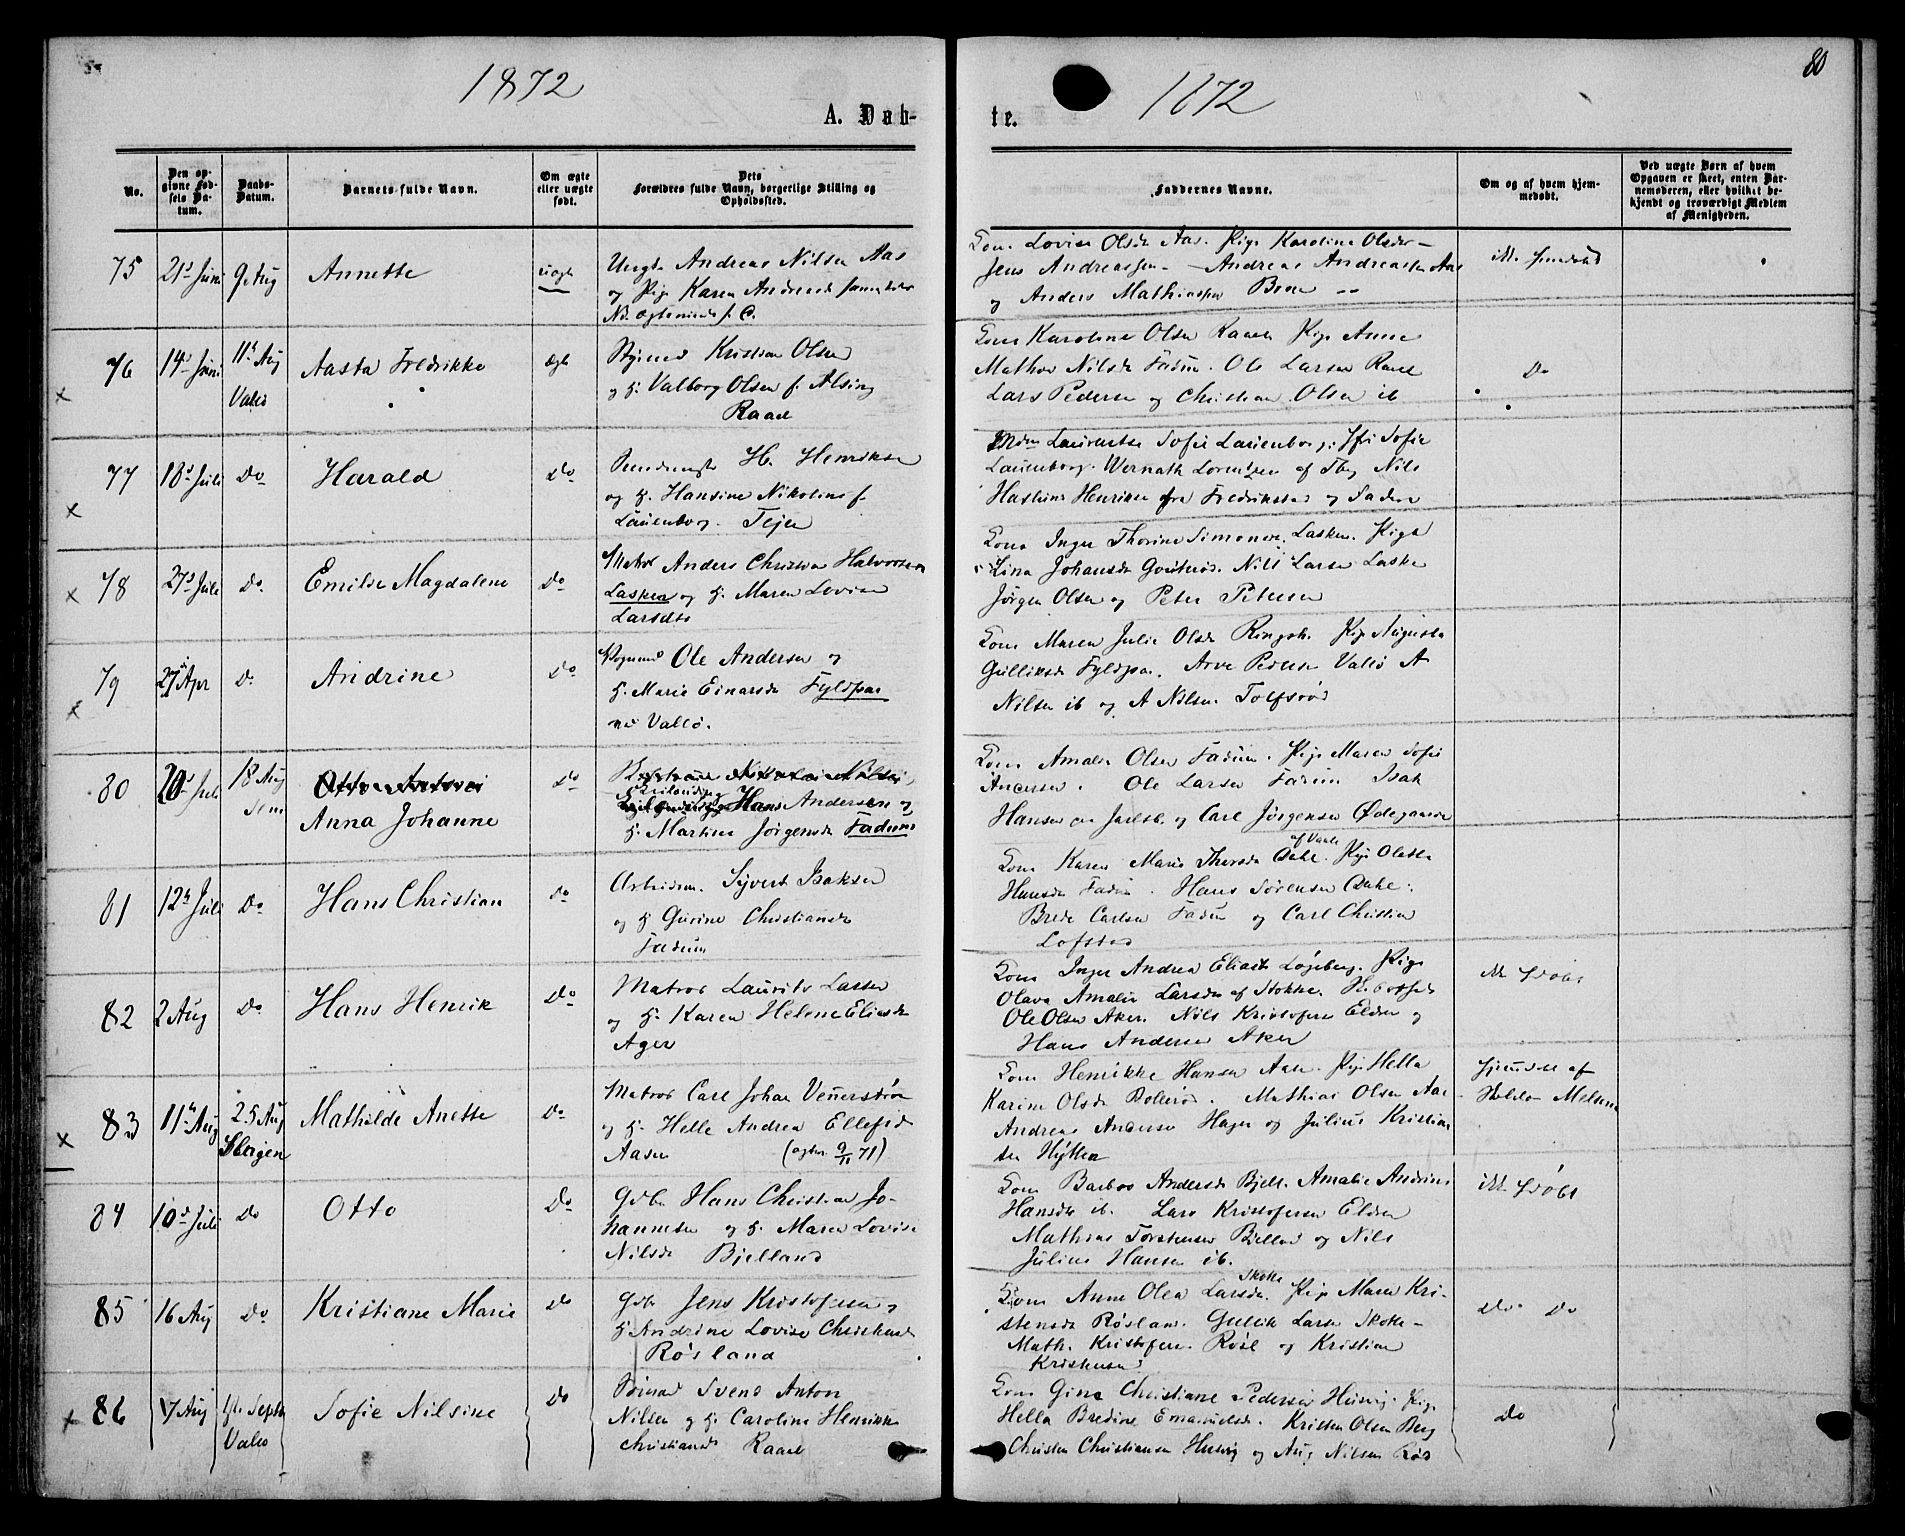 1872
1872
80
A. Døb-
te.
No.
Den op-
givne Fød-
sels Da-
tum.
Daabs-
Datum.
Barnets fulde Navn.
Om ægte
eller uægte
født.
Dets
Forældres fulde Navn, borgerlige Stilling og
Opholdssted.
Faddernes Navne.
Om og af hvem hjem-
medøbt.
Ved uægte Børn af hvem
Opgaven er skeet, enten Bar-
nemoderen, eller hvilket be-
kjendt og troværdigt Medlem
af Menigheden.
75
21s Juni
9 Aug
Annette
uægt
Ungk Andreas Nilsen Aas
og Pige Karen Andreasd
Kone Lovise Olsdt Aas. Pige Karoline Olsdr
Jens Andreassen - Andreas Andreassen Aas
og Anders Mathiassen
76
14s Juni
11t Aug
Valø
Aasta Fredrikke
ægt
Styrmd Kristian Olsen
og H. Valborg Olsen f. Alsing
Raael
Kone Karoline Olsen Raael Pige Anne
Mathea Nilsd Fadum. Ole Larsen Raael
Lars Pedersen og Christian Olsen ib
Do
77
18d Juli
Do
Harald
Do
H. Henriksen
og H. Hansine Nikoline f.
Lauenborg. Teje
Mdm Lauentse Sofie Lauenborg. Jfr Sofie
Lauenborg. Wernath Lorentzen af Tbg Nils
Henriksen fra Fredrikstad og Fader
78
27s Juli
Do
Emilie Magdalene
Do
Matros Anders Christian Halvorsen
Lasken og H. Maren Lovise
Larsdt
Kone Inger Thorine Simonsen. Lasken. Pige
Lina Johansdt Nils Larsen Lasken
Jørgen Olsen og Peter Petersen
79
27 Apr
Do
Andrine
Do
Ole Andersen og
H. Marie Einarsd Fyldpaa
ved Vallø.
Kone Maren Julie Olsd Ringsh. Pige Augusta
Gulliksd Fyldpaa. Arve Pedersen Vallø A
Nilsen ib og A Nilsen Tolfsrød
80
20s Juli
18 Aug
Sem
Anna Johanne
Do
Hans Andersen og
H. Martine Jørgensd Fadum
Kone Amalie Olsen Fadum. Pige Maren Sofie
Andersen. Ole Larsen Fadum Isak
Hansen Jarlsb. og Carl Jørgensen Ødegaarden
81
12t Juli
Do
Hans Christian
Do
Arbeidsm. Syvert Isaksen
og H. Gurine Christiansdr
Fadum
Kone Karen Marie Thorsd af Vaale Pige Oleste
Hansdr Fadum. Hans Sørensen
Brede Carlsen Fadum og Carl Christian
Lofstad
82
2 Aug
Do
Hans Henrik
Do
Matros Laurits Larsen
og H. Karen Helene Eliasd
Ager
Kone Inger Andrea Eliasdt Løgeberg. Pige
Olava Amalie Larsdr af Stokke.
Ole Olsen Aker. Nils Kristofersen Eldsen og
Hans Andersen Aker
83
11t Aug
25 Aug
Slagen
Mathilde Anette
Do
Matros Carl Johan Vennerstrøm
og H. Helle Andrea Ellefsd
Aasen (egtev. 9/11 71)
Kone Henrikke Hansen Aasen. Pige Hella
Karine Olsd Bollerød. Mathias Olsen Aas
Andreas Andersen Hager og Julius Kristian
sen Hytten
hjemmed af
84
10d Juli
Do
Otto
Do
Gdbr Hans Christian Jo-
hannesen og H. Maren Lovise
Nilsd Bjelland
Kone Barbro Andersd Bjell. Amalie Andrine
Hansdr ib. Lars Kristofersen Eldsen
Mathias Torstensen Bjelland og Nils
Julius Hansen ib.
85
16 Aug
Do
Kristiane Marie
Do
Gdbr Jens Kristofersen og
H. Andrine Lovise Christensd
Røsland
Kone Anne Olea Larsdr. Skotte Pige Maren Kri-
stensdr Røsland. Gullik Larsen Skotte
Math. Kristofersen Røsl og Kristian
Kristensen
Do Do
86
7 Aug
1ste Septbr
Valø
Sofie Nilsine
Do
Svend Anton
Nilsen og H. Caroline Henrikke
Christiansd Raael
Kone Gina Christiane Pedersen Husvig. Pige
Hella Bredine Emanuelsd. Kristen Olsen Berg
Christen Christiansen Husvig og Aug Nilsen Røs
Do